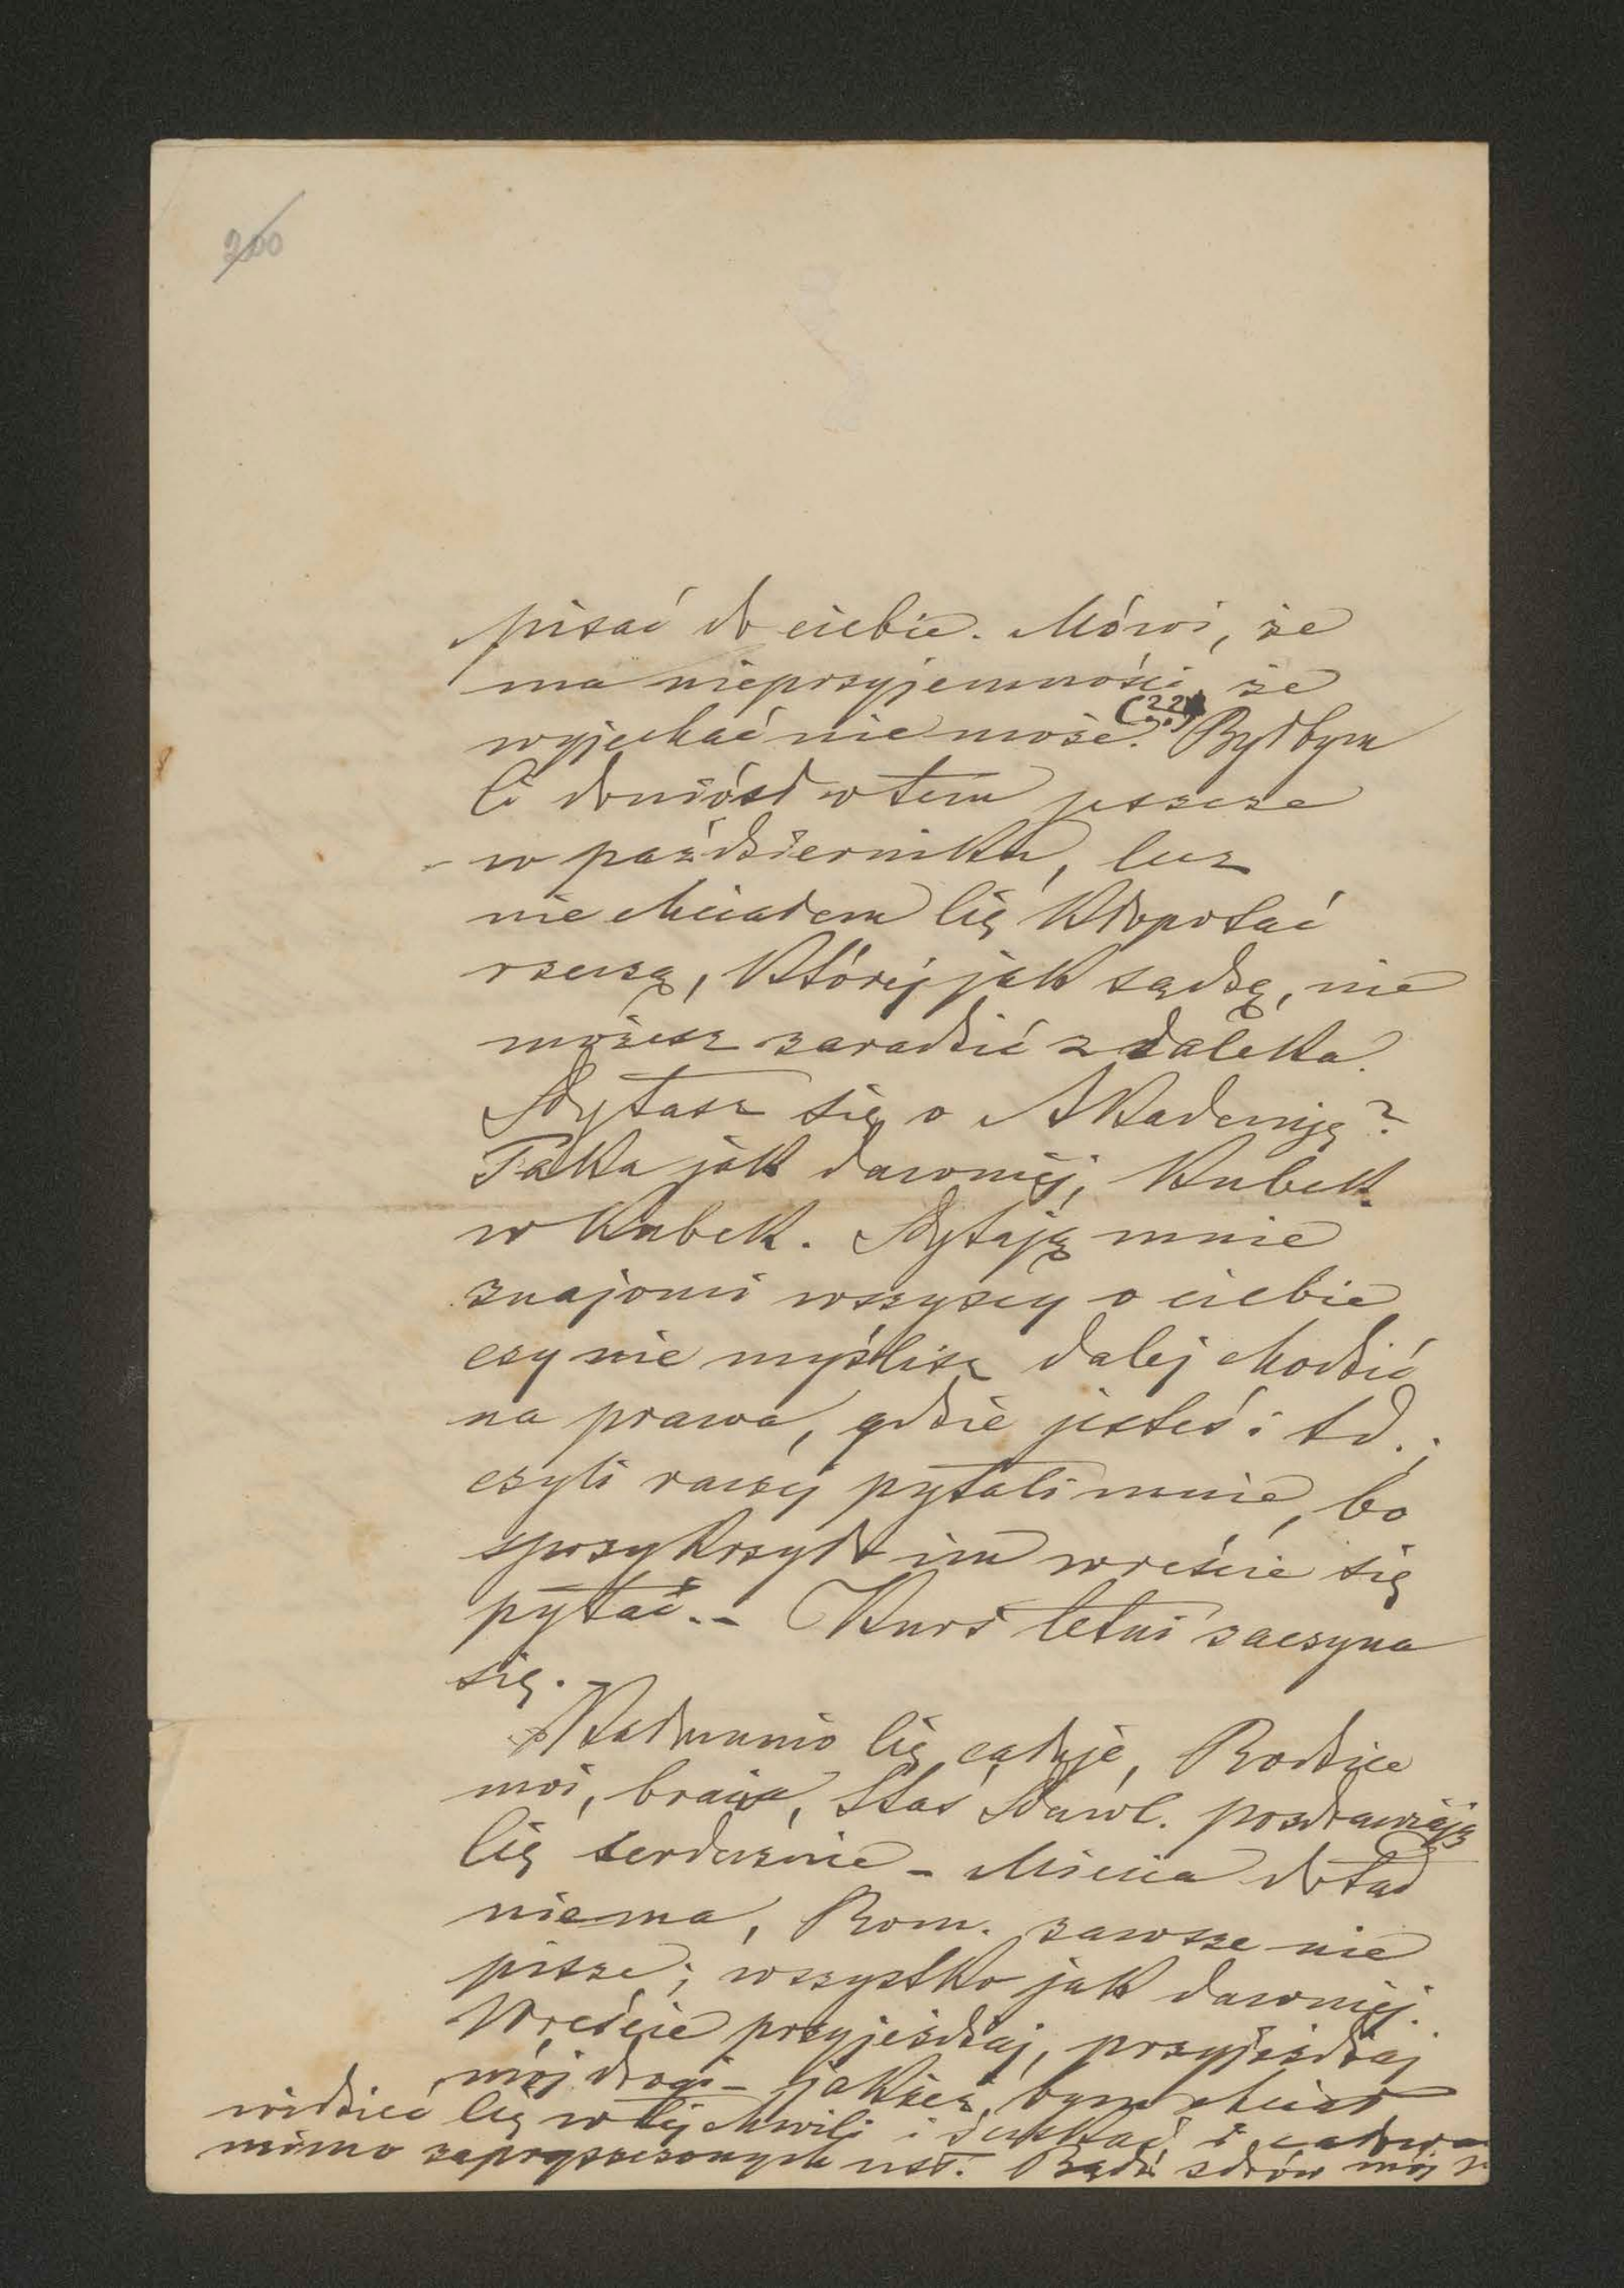 200
pisać do ciebie. Mówi, że
ma nieprzyjemności że
wyjechać nie może. (??) Byłbym
Ci doniósł o tem jeszcze
w październiku, lecz
nie chciałem Cię kłopotać
rzeczą, której jak sądzę, nie
możesz zaradzić z daleka.
Pytasz się o Akademję?
Taka jak dawniej, kubek
w kubek. Pytają mnie
znajomi wszyscy o ciebie
czy nie myślisz dalej chodzić
na prawa, gdzie jesteś i td.;
czyli raczej pytali mnie, bo
sprzykrzyło im wreście się
pytać. – Kurs letni zaczyna
się. –
Cię całuje, Rodzice
moi, bracia, Staś Pawl. pozdrawiają
Cię serdecznie – Miecia dotąd
niema, Rom. zawsze nie
pisze; wszystko jak dawniej.
Wreście przyjeżdżaj, przyjeżdżaj
mój drogi – jakżeż bym chciał
widzieć Cię w tej chwili i
mimo zapryszczonych ust. Bądź zdrów mój